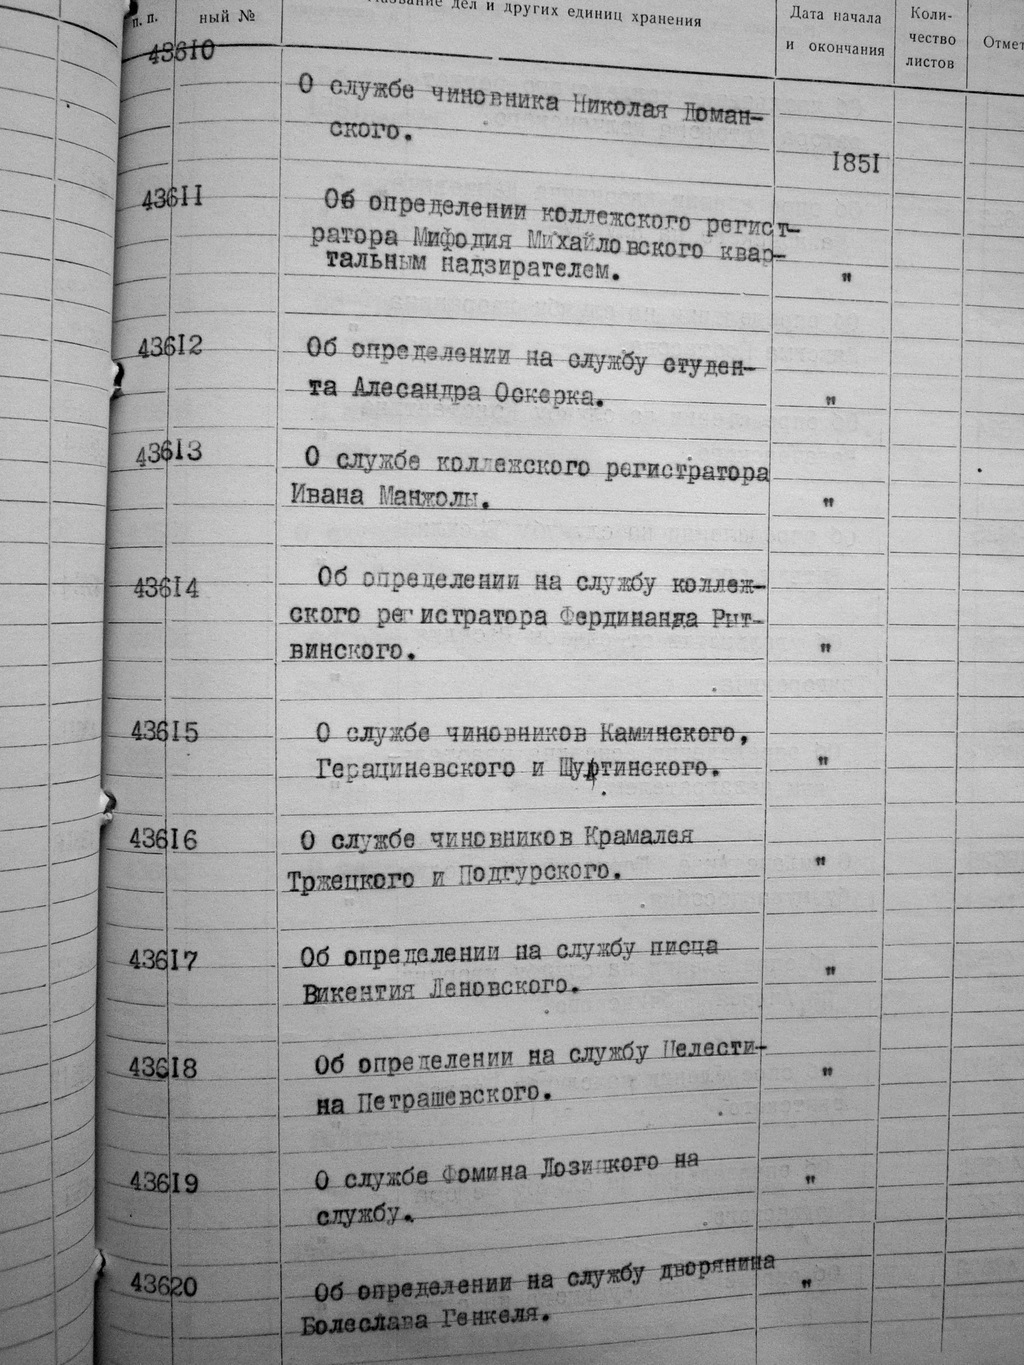 п. п.
ный №
Название дел и других единиц хранения
Дата начала
и окончания
Коли-
чество
листов
Отмет
43610
О службе чиновника Николая Доман-
ского.
1851
43611
Об определении коллежского регист-
ратора Мифодия Михайловского квар-
тальным надзирателем.
"
43612
Об определении на службу студен-
та Алесандра Оскерка.
"
43613
О службе коллежского регистратора
Ивана Манжолы.
"
43614
Об определении на службу коллеж-
ского регистратора Фердинанда Рыт-
винского.
"
43615
О службе чиновников Каминского,
Герациневского и
"
43616
О службе чиновников Крамалея
Тржецкого и Подгурского.
"
43617
Об определении на службу писца
Викентия Леновского.
"
43618
Об определении на службу Целести-
на Петрашевского.
"
43619
О службе Фомина Лозицкого на
службу.
"
43620
Об определении на службу дворянина
Болеслава Генкеля.
"